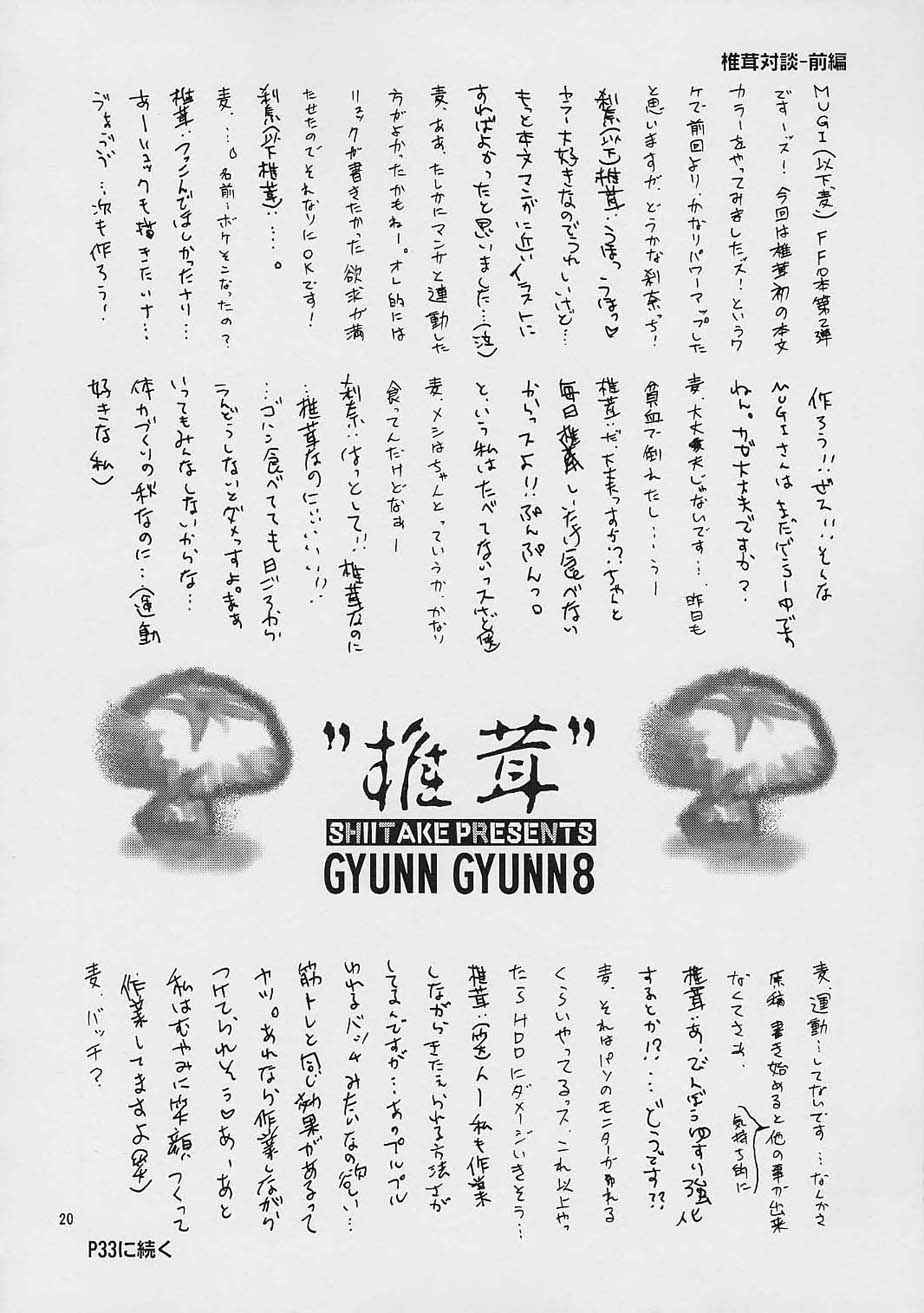 椎茸対談-前編
MUGI(以下麦)FF本第2弾
ですーズ!今回は椎茸初の本文
カラーをやってみましたッズ!というワ
ケで前回よりかなりパワーアップした
と思いますがどうかな刹奈っち!
刹奈(以下)椎茸:うほっうほっ♡
カラー大好きなのでうれしいけど…
もっと本文マンガに近いイラストに
すればよかったと思いました…(泣)
麦、ああ、たしかにマンガと連動した
方がよかったかもねー。オレ的には
リュックが書きたかった欲求が満
たせたのでそれなりにOKです!
刹奈(以下椎茸):…。
麦、…。名前…ボケそこなったの?
椎茸:ファこんでほしかったナリ…
あーリュックも描きたいナ…
次も作ろう!
作ろう!!ぜス!!そんな
MUGIさんはまだげろーゆです
ねん。カゼ大丈夫ですか?
麦、大丈夫じゃないです…、昨日も
貧血で倒れたし…うー
椎茸:だ、大丈夫っすか!?ちゃんと
毎日椎茸しいたけ食べない
からっスよ!!ぷんぷんっ。
という私はたべてないっスけど(僕)
麦、メシはちゃんとっていうか、かなり
食ってんだけどなぁー
刹奈:はっとして!!椎茸なのに
…椎茸なのにいいいい!!
…ゴハン食べてても日ごろから
うんどうしないとダメっすよ。まぁ
いってもみんなしないからな…
体力づくりの秋なのに…(運動
好きな私)
"椎茸"
SHIITAKE PRESENTS
GYUNN GYUNN8
麦、運動…してないです…なんかさ
原稿書き始めると他の事が出来
なくてさぁ、
気持ち的に
椎茸:あ、でんぼうゆすり強化
するとか!?…どうっです??
麦、それはパソのモニターがゆれる
くらいやってるっス、これ以上やっ
たらHDDにダメージいきそう…
椎茸:(笑)んー私も作業
しながらきたえられる方法さが
してるんですが…あのプルプル
ゆれるバシムみたいなの欲しい…
筋トレと同じ効果があるって
ヤツ。あれなら作業しながら
つけてられそう♡あーあと
私はむやみに笑顔つくって
作業してますよ(笑)
麦、バッチ?
20
P33に続く